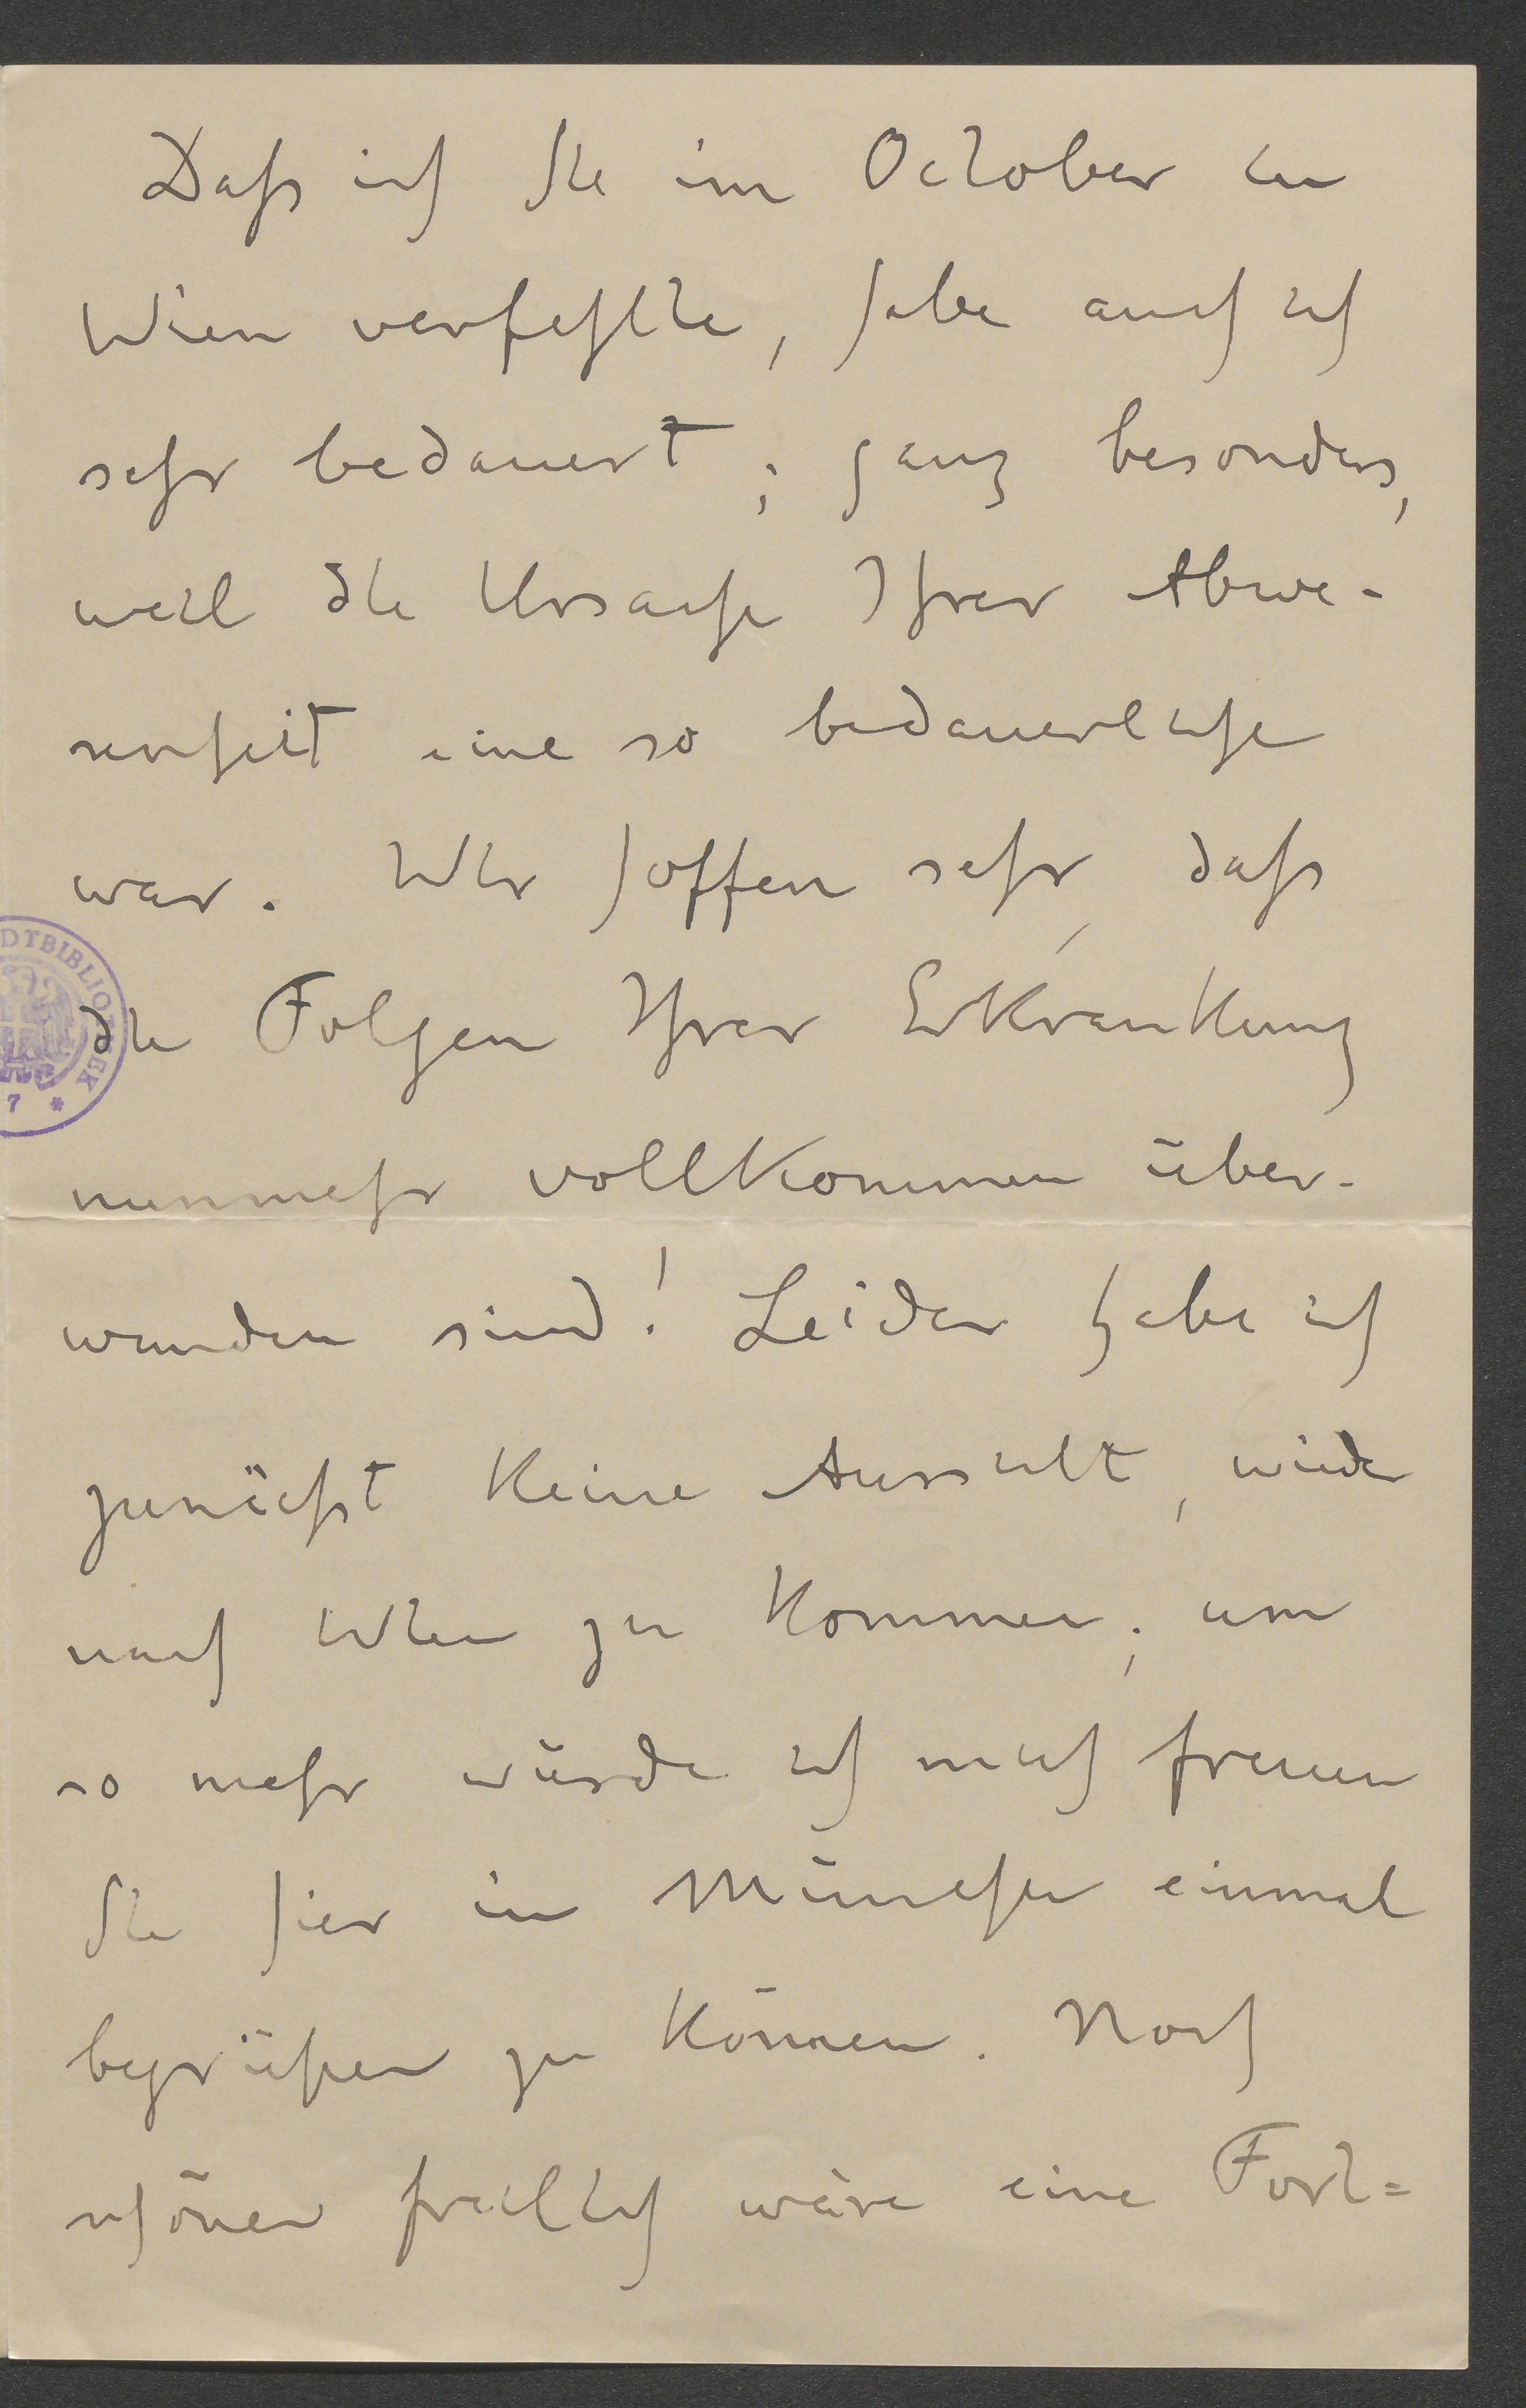 Daß ich Sie im October in
Wien verfehlte, habe auch ich
sehr bedauert; ganz besonders,
weil die Ursache Ihrer Abwe-
senheit eine so bedauerliche
war. Wir hoffen sehr, daß
die Folgen Ihrer Erkrankung
nunmehr vollkommen über-
wunden sind! Leider habe ich
zunächst keine Aussicht, wieder
nach Wien zu kommen; um
so mehr würde ich mich freuen
Sie hier in München einmal
begrüßen zu können. Noch
schöner freilich wäre eine Fort=
DTBIBLIOTHEK
7 *